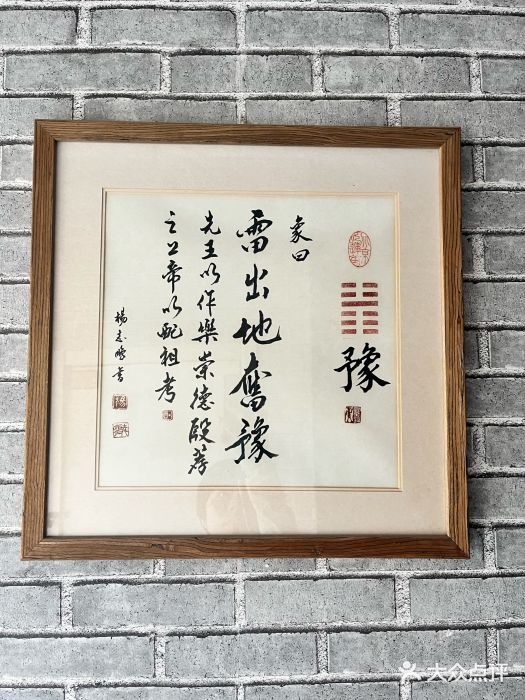 豫
象曰
雷出地奮豫
先王以作樂崇德殷荐
之上帝以配祖考
楊志
書
大众点评